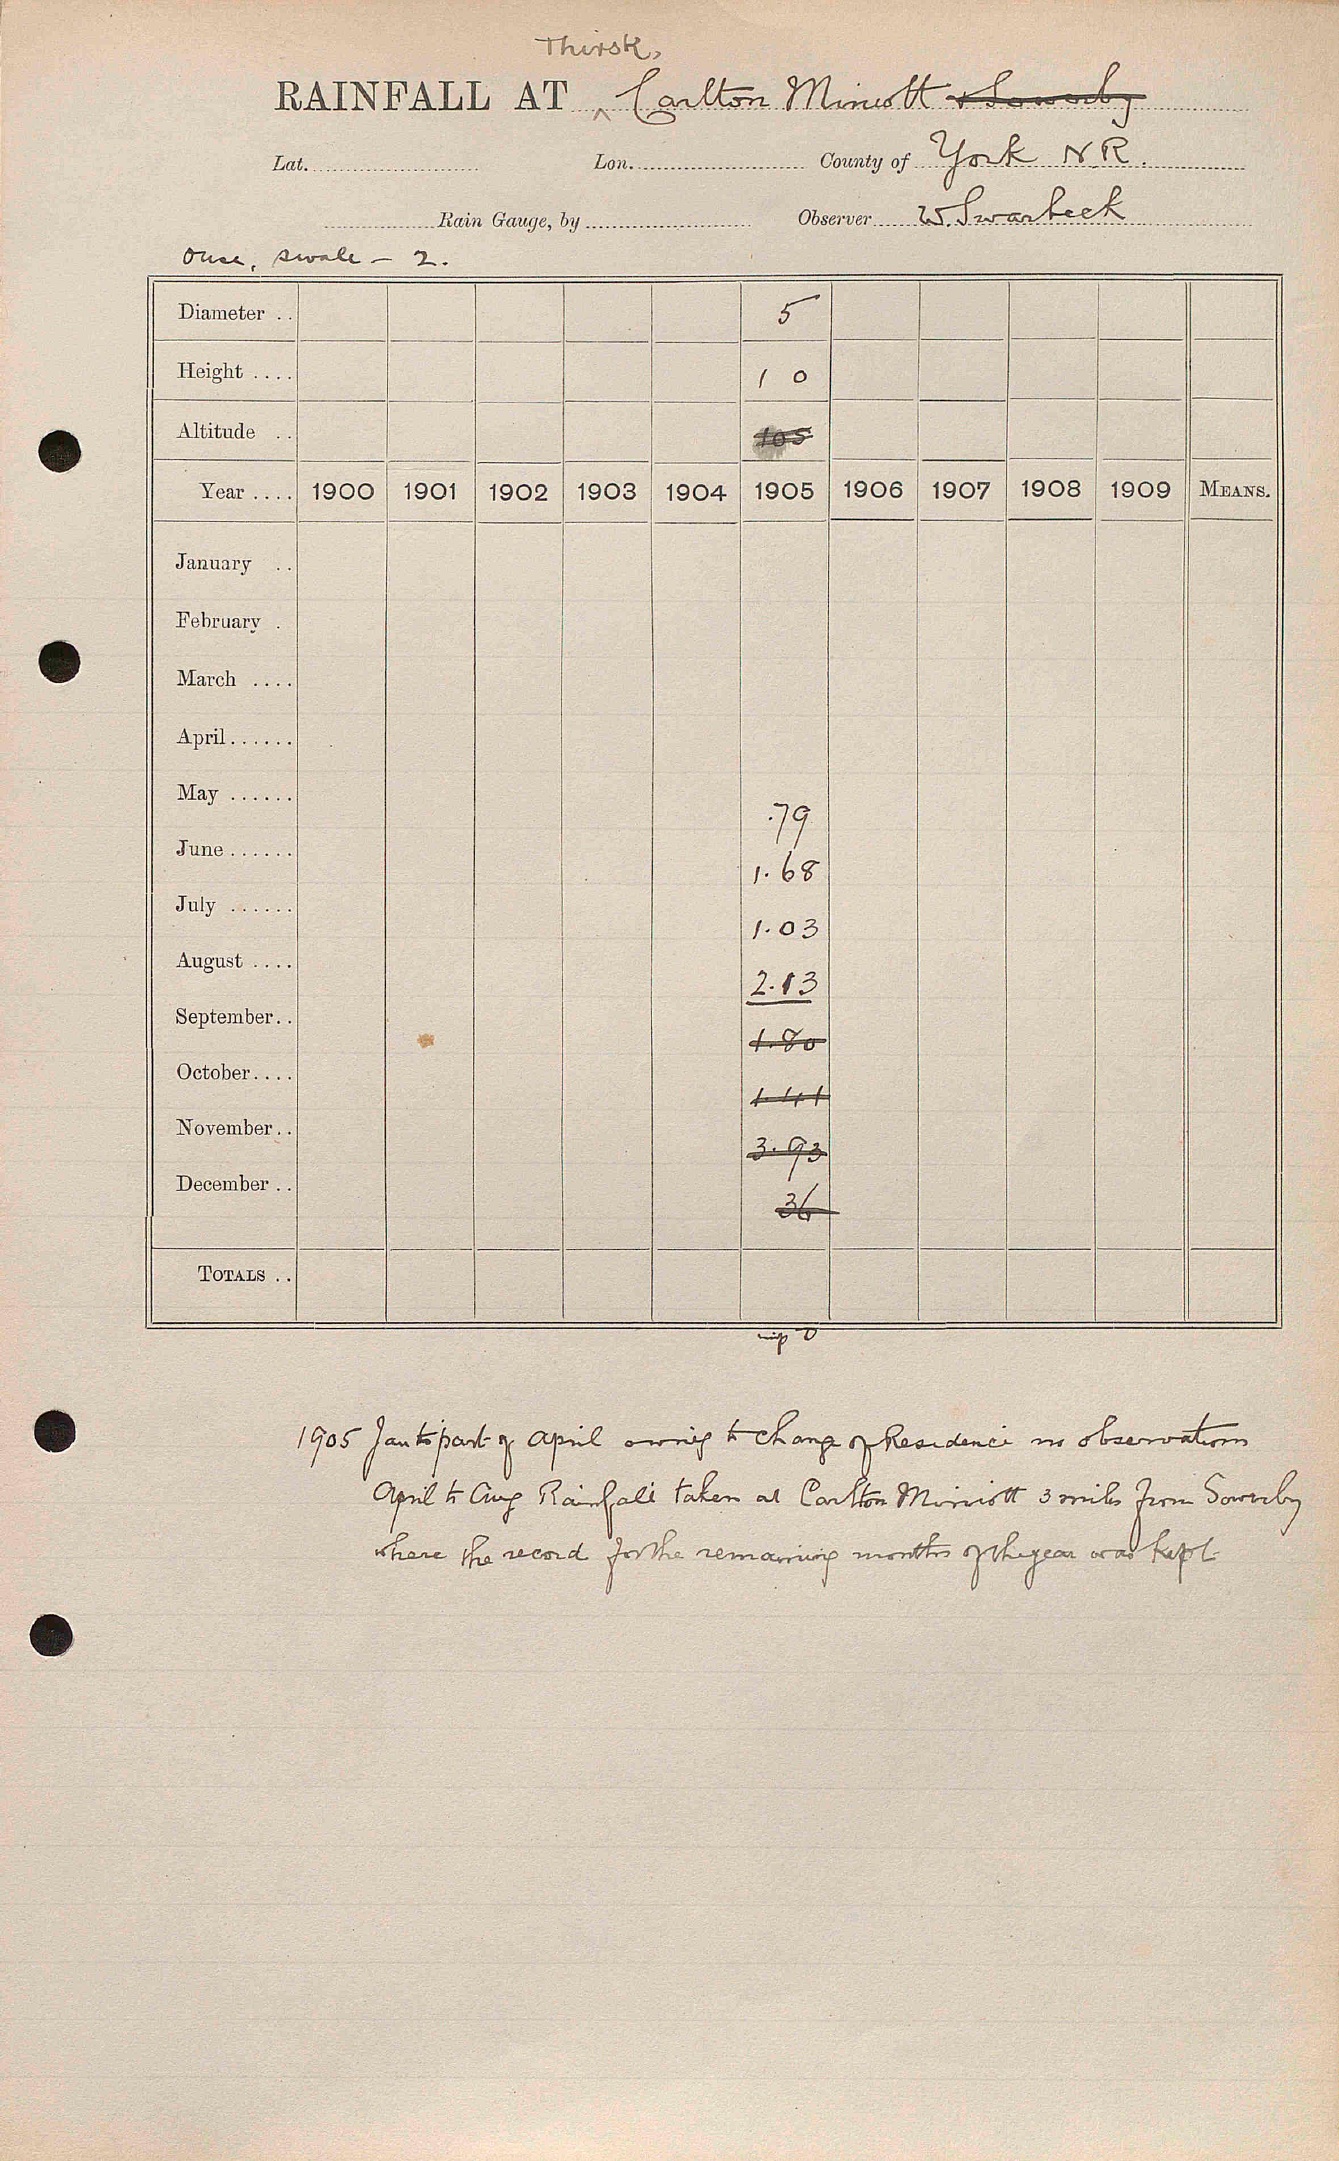 Thirsk,
RAINFALL AT Carlton Miniott & Sowerby
Lat. Lon. County of York NR.
Rain Gauge, by Observer W. Swarbeck
Ouse, Swale – 2.
Diameter .. 5
Height .... 1 0
Altitude .. 105
Year .... 1900 1901 1902 1903 1904 1905 1906 1907 1908 1909 MEANS.
January ..
February .
March ....
April......
May ...... .79
June...... 1.68
July ...... 1.03
August .... 2.13
September.. 1.80
October.... 1.41
November.. 3.93
December .. 36
TOTALS ..
1905 Jan to part of April owing to change of Residence no observations
April to Aug Rainfall taken at Carlton Miniott 3 miles from Sowerby
where the record for the remaining months of the year was kept